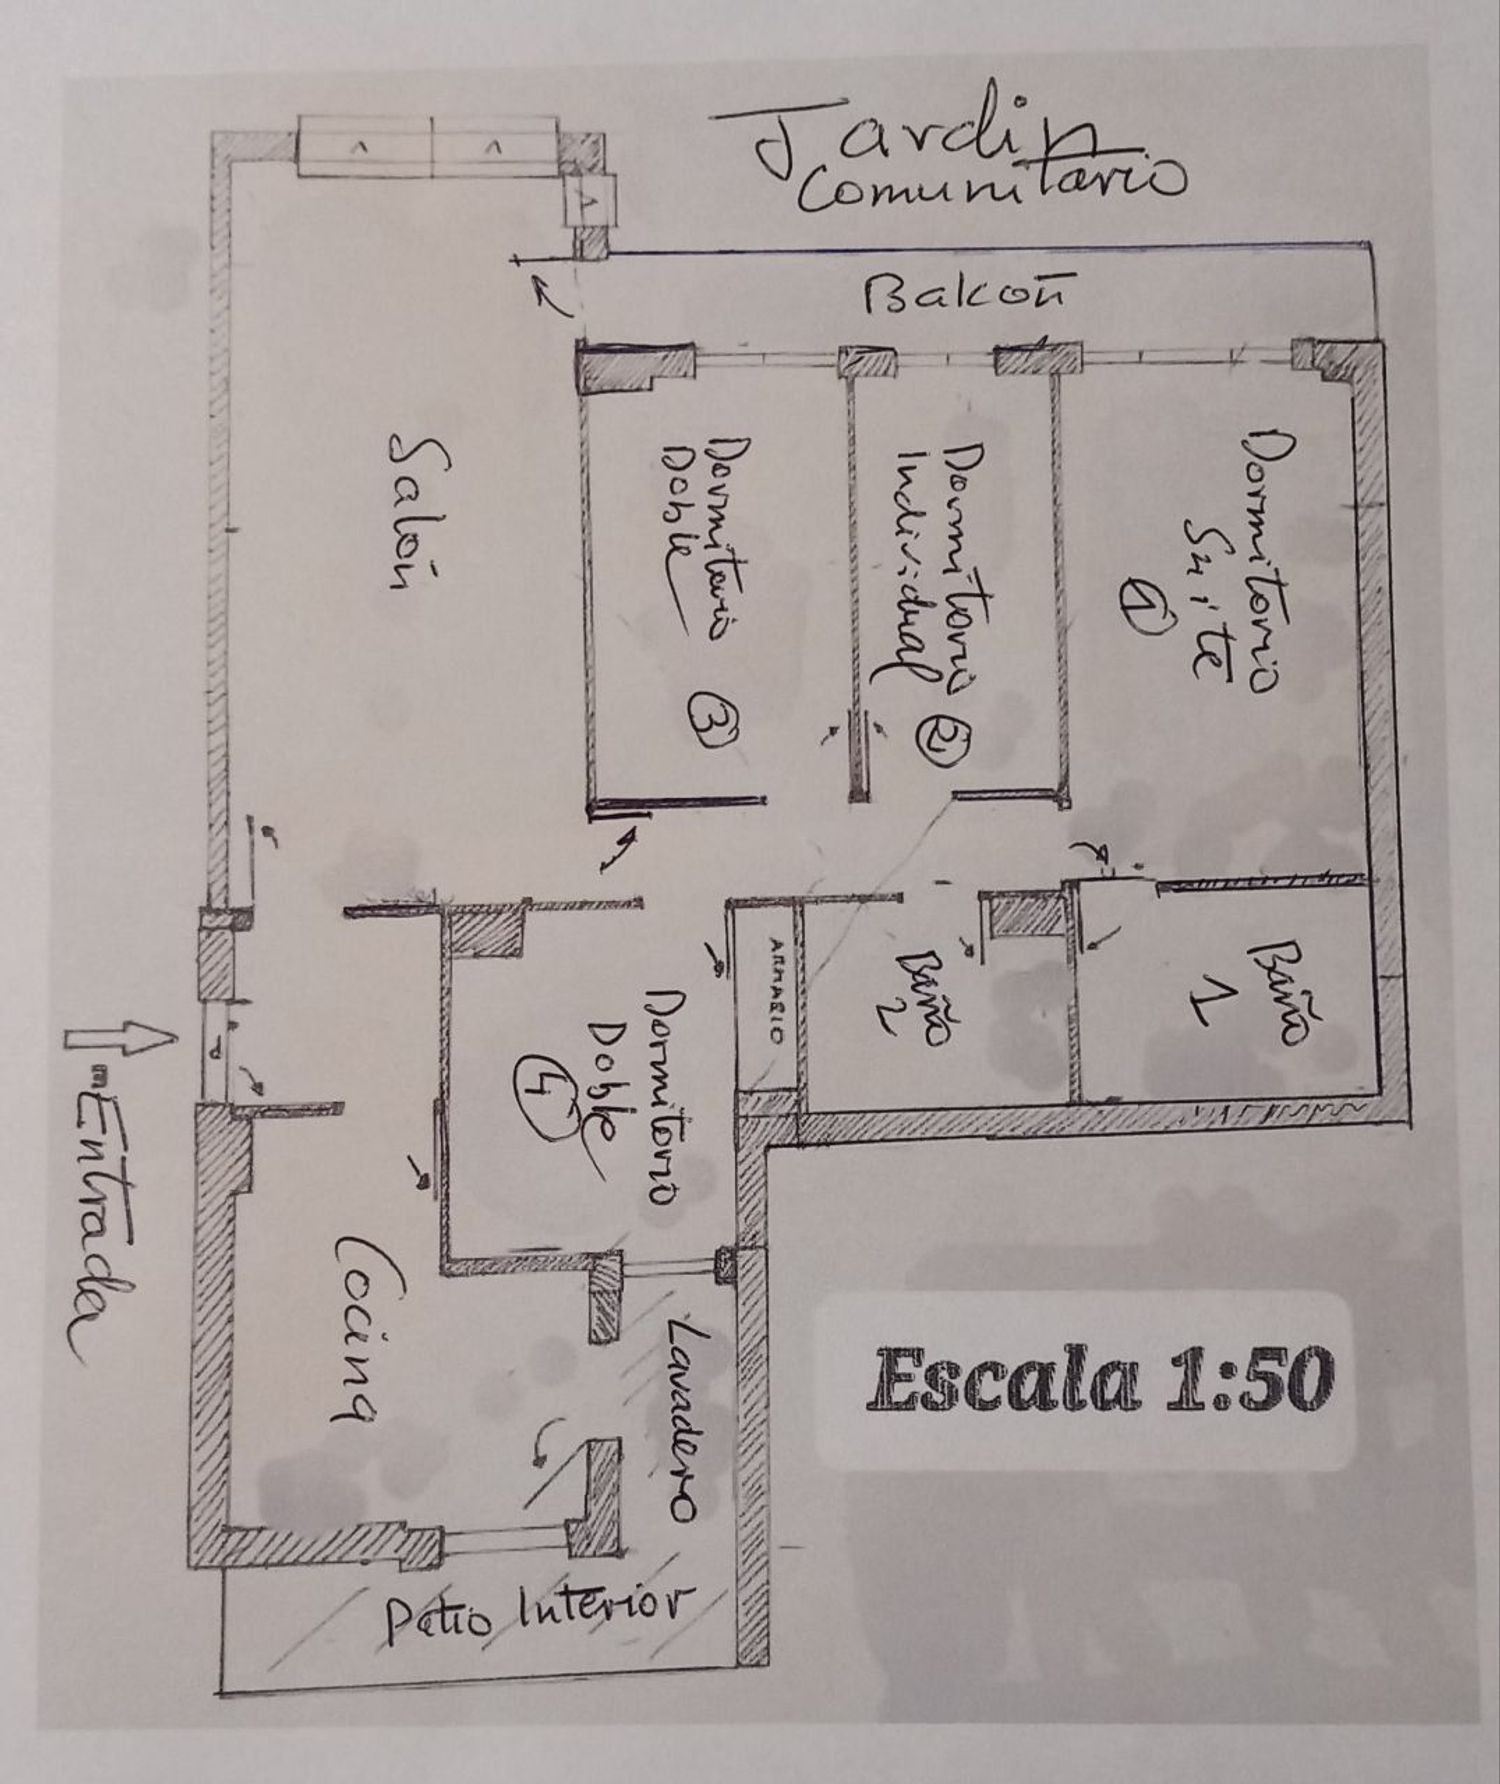 Jardin
Comunitario
Balkoń
Salón
Dormitorio
Doble
3
Dormitorio
Individual
2
Dormitorio
Suite
1
ARMARIO
Baño
2
Baño
1
Dormitorio
Doble
4
Entrada
Cocina
Lavadero
Patio Interior
Escala 1:50